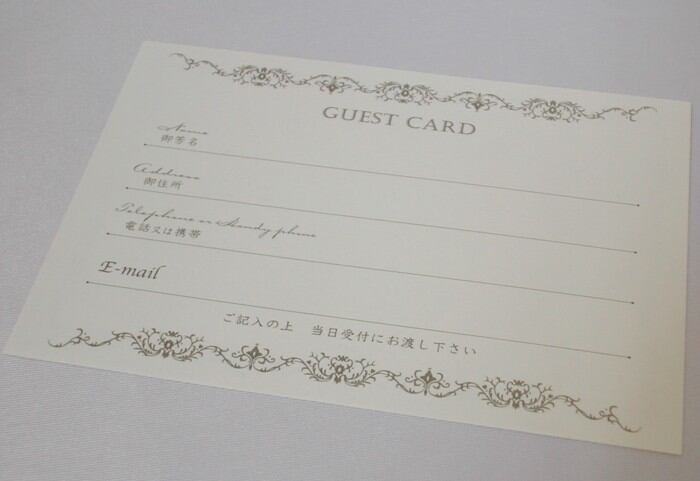 GUEST CARD
Name
御芳名
Address
御住所
Telephone or Handy phone
電話又は携帯
E-mail
ご記入の上　当日受付にお渡し下さい